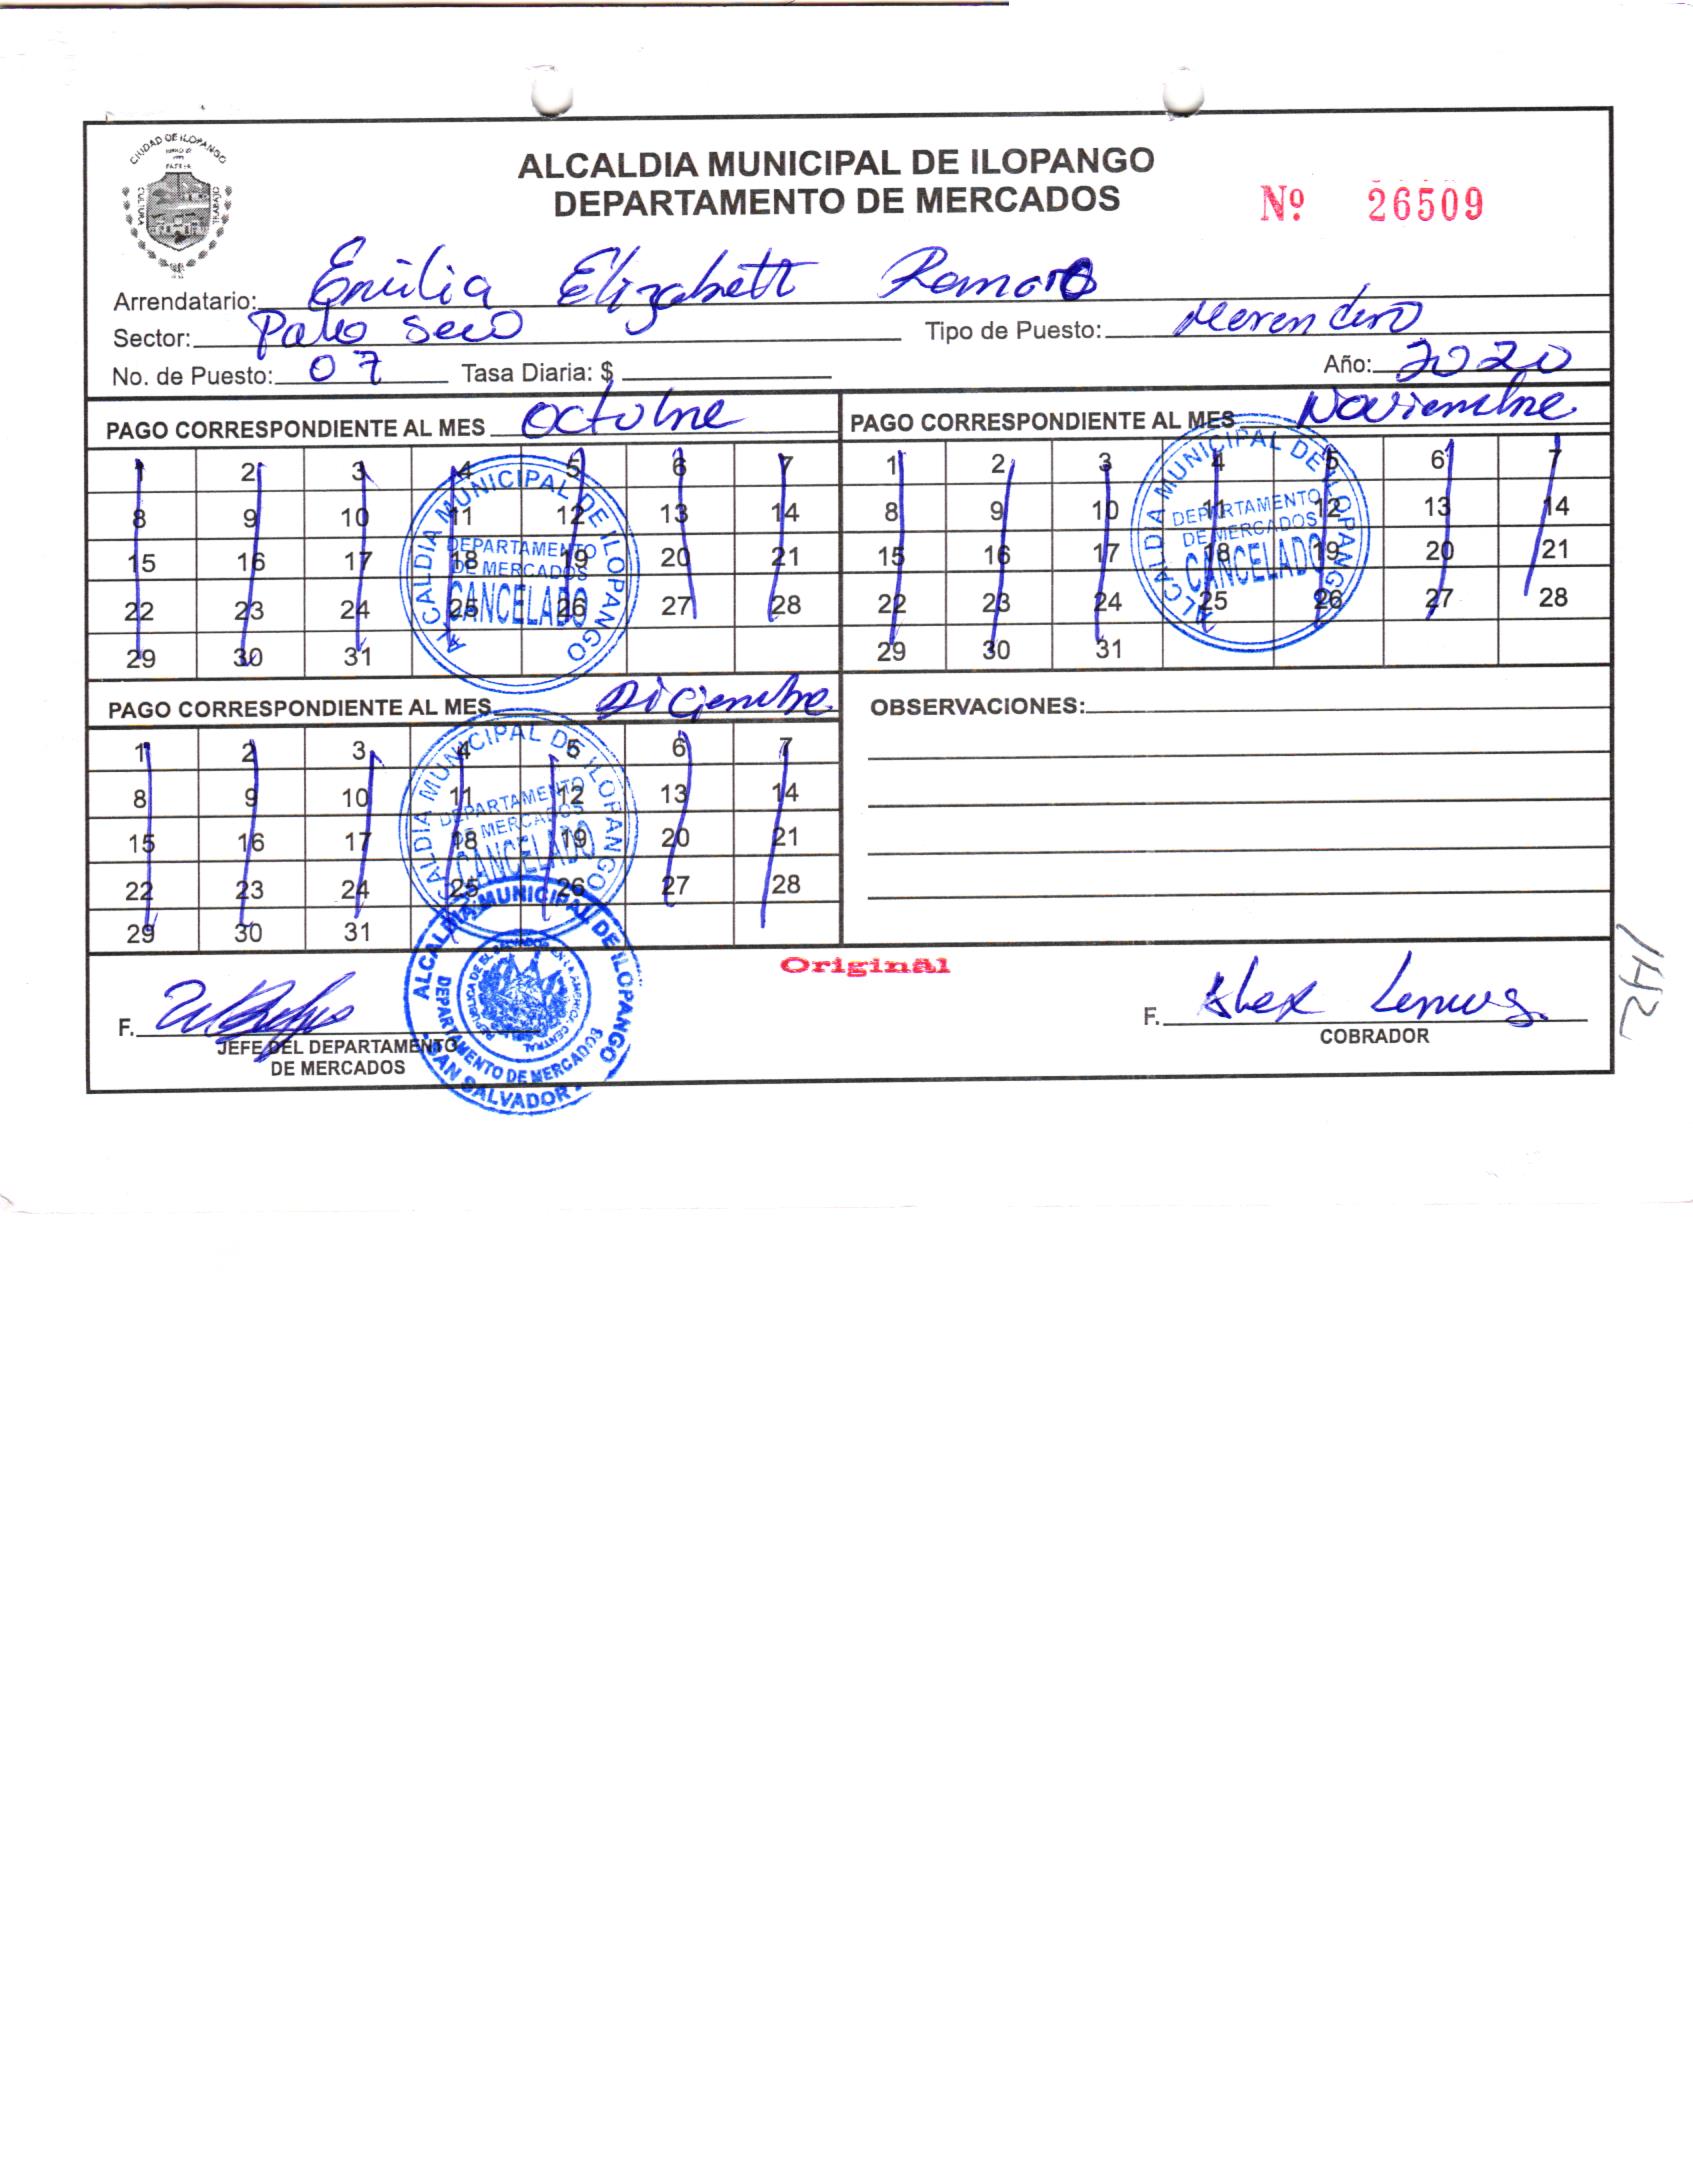 CIUDAD DE ILOPANGO
CULTURA
TRABAJO
ALCALDIA MUNICIPAL DE ILOPANGO
DEPARTAMENTO DE MERCADOS
Nº 26509
Arrendatario: Emilia Elizabett Romero
Sector: Palo Seco Tipo de Puesto: Merendero
No. de Puesto: 07 Tasa Diaria: $ Año: 2020
PAGO CORRESPONDIENTE AL MES Octubre
1 2 3 4 5 6 7
8 9 10 11 12 13 14
15 16 17 18 19 20 21
22 23 24 25 26 27 28
29 30 31
ALCALDIA MUNICIPAL DE ILOPANGO
DEPARTAMENTO
DE MERCADOS
CANCELADO
PAGO CORRESPONDIENTE AL MES Noviembre
1 2 3 4 5 6 7
8 9 10 11 12 13 14
15 16 17 18 19 20 21
22 23 24 25 26 27 28
29 30 31
ALCALDIA MUNICIPAL DE ILOPANGO
DEPARTAMENTO
DE MERCADOS
CANCELADO
PAGO CORRESPONDIENTE AL MES Diciembre
1 2 3 4 5 6 7
8 9 10 11 12 13 14
15 16 17 18 19 20 21
22 23 24 25 26 27 28
29 30 31
ALCALDIA MUNICIPAL DE ILOPANGO
DEPARTAMENTO
DE MERCADOS
CANCELADO
OBSERVACIONES:
Original
F.
JEFE DEL DEPARTAMENTO
DE MERCADOS
ALCALDIA MUNICIPAL DE ILOPANGO
DEPARTAMENTO DE MERCADOS
REPUBLICA DE EL SALVADOR EN LA AMERICA CENTRAL
SAN SALVADOR
F. Alex Lemus
COBRADOR
142